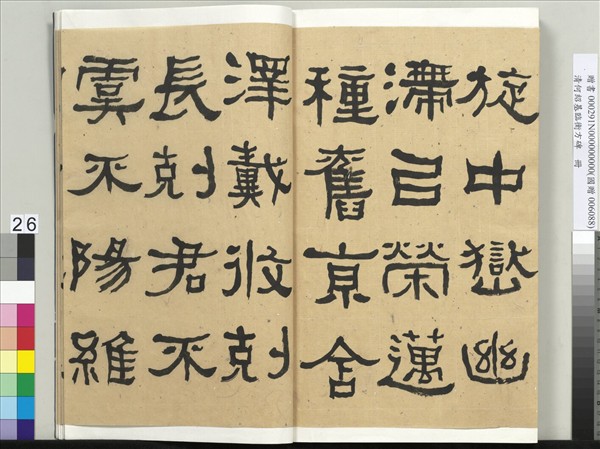 旋中嶽幽
滯㠯榮邁
種舊京舍
澤戴剋
長剋君不
虞不陽維
26
贈書 000291N000000000(國贈 006088)
清何紹基臨衡方碑 冊